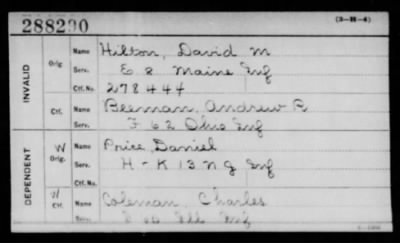 288200
(3-H-4)
INVALID
Orig.
Name Hilton, David M
Serv. E 8 Maine Inf
Ctf. No. 278444
Ctf.
Name Beeman, Andrew
Serv. F 62 Ohio Inf
DEPENDENT
W Orig.
Name Price, Daniel
Serv. H-K 13 N Y Inf
Ctf. No.
W Ctf.
Name Coleman, Charles
Serv. Ill Inf